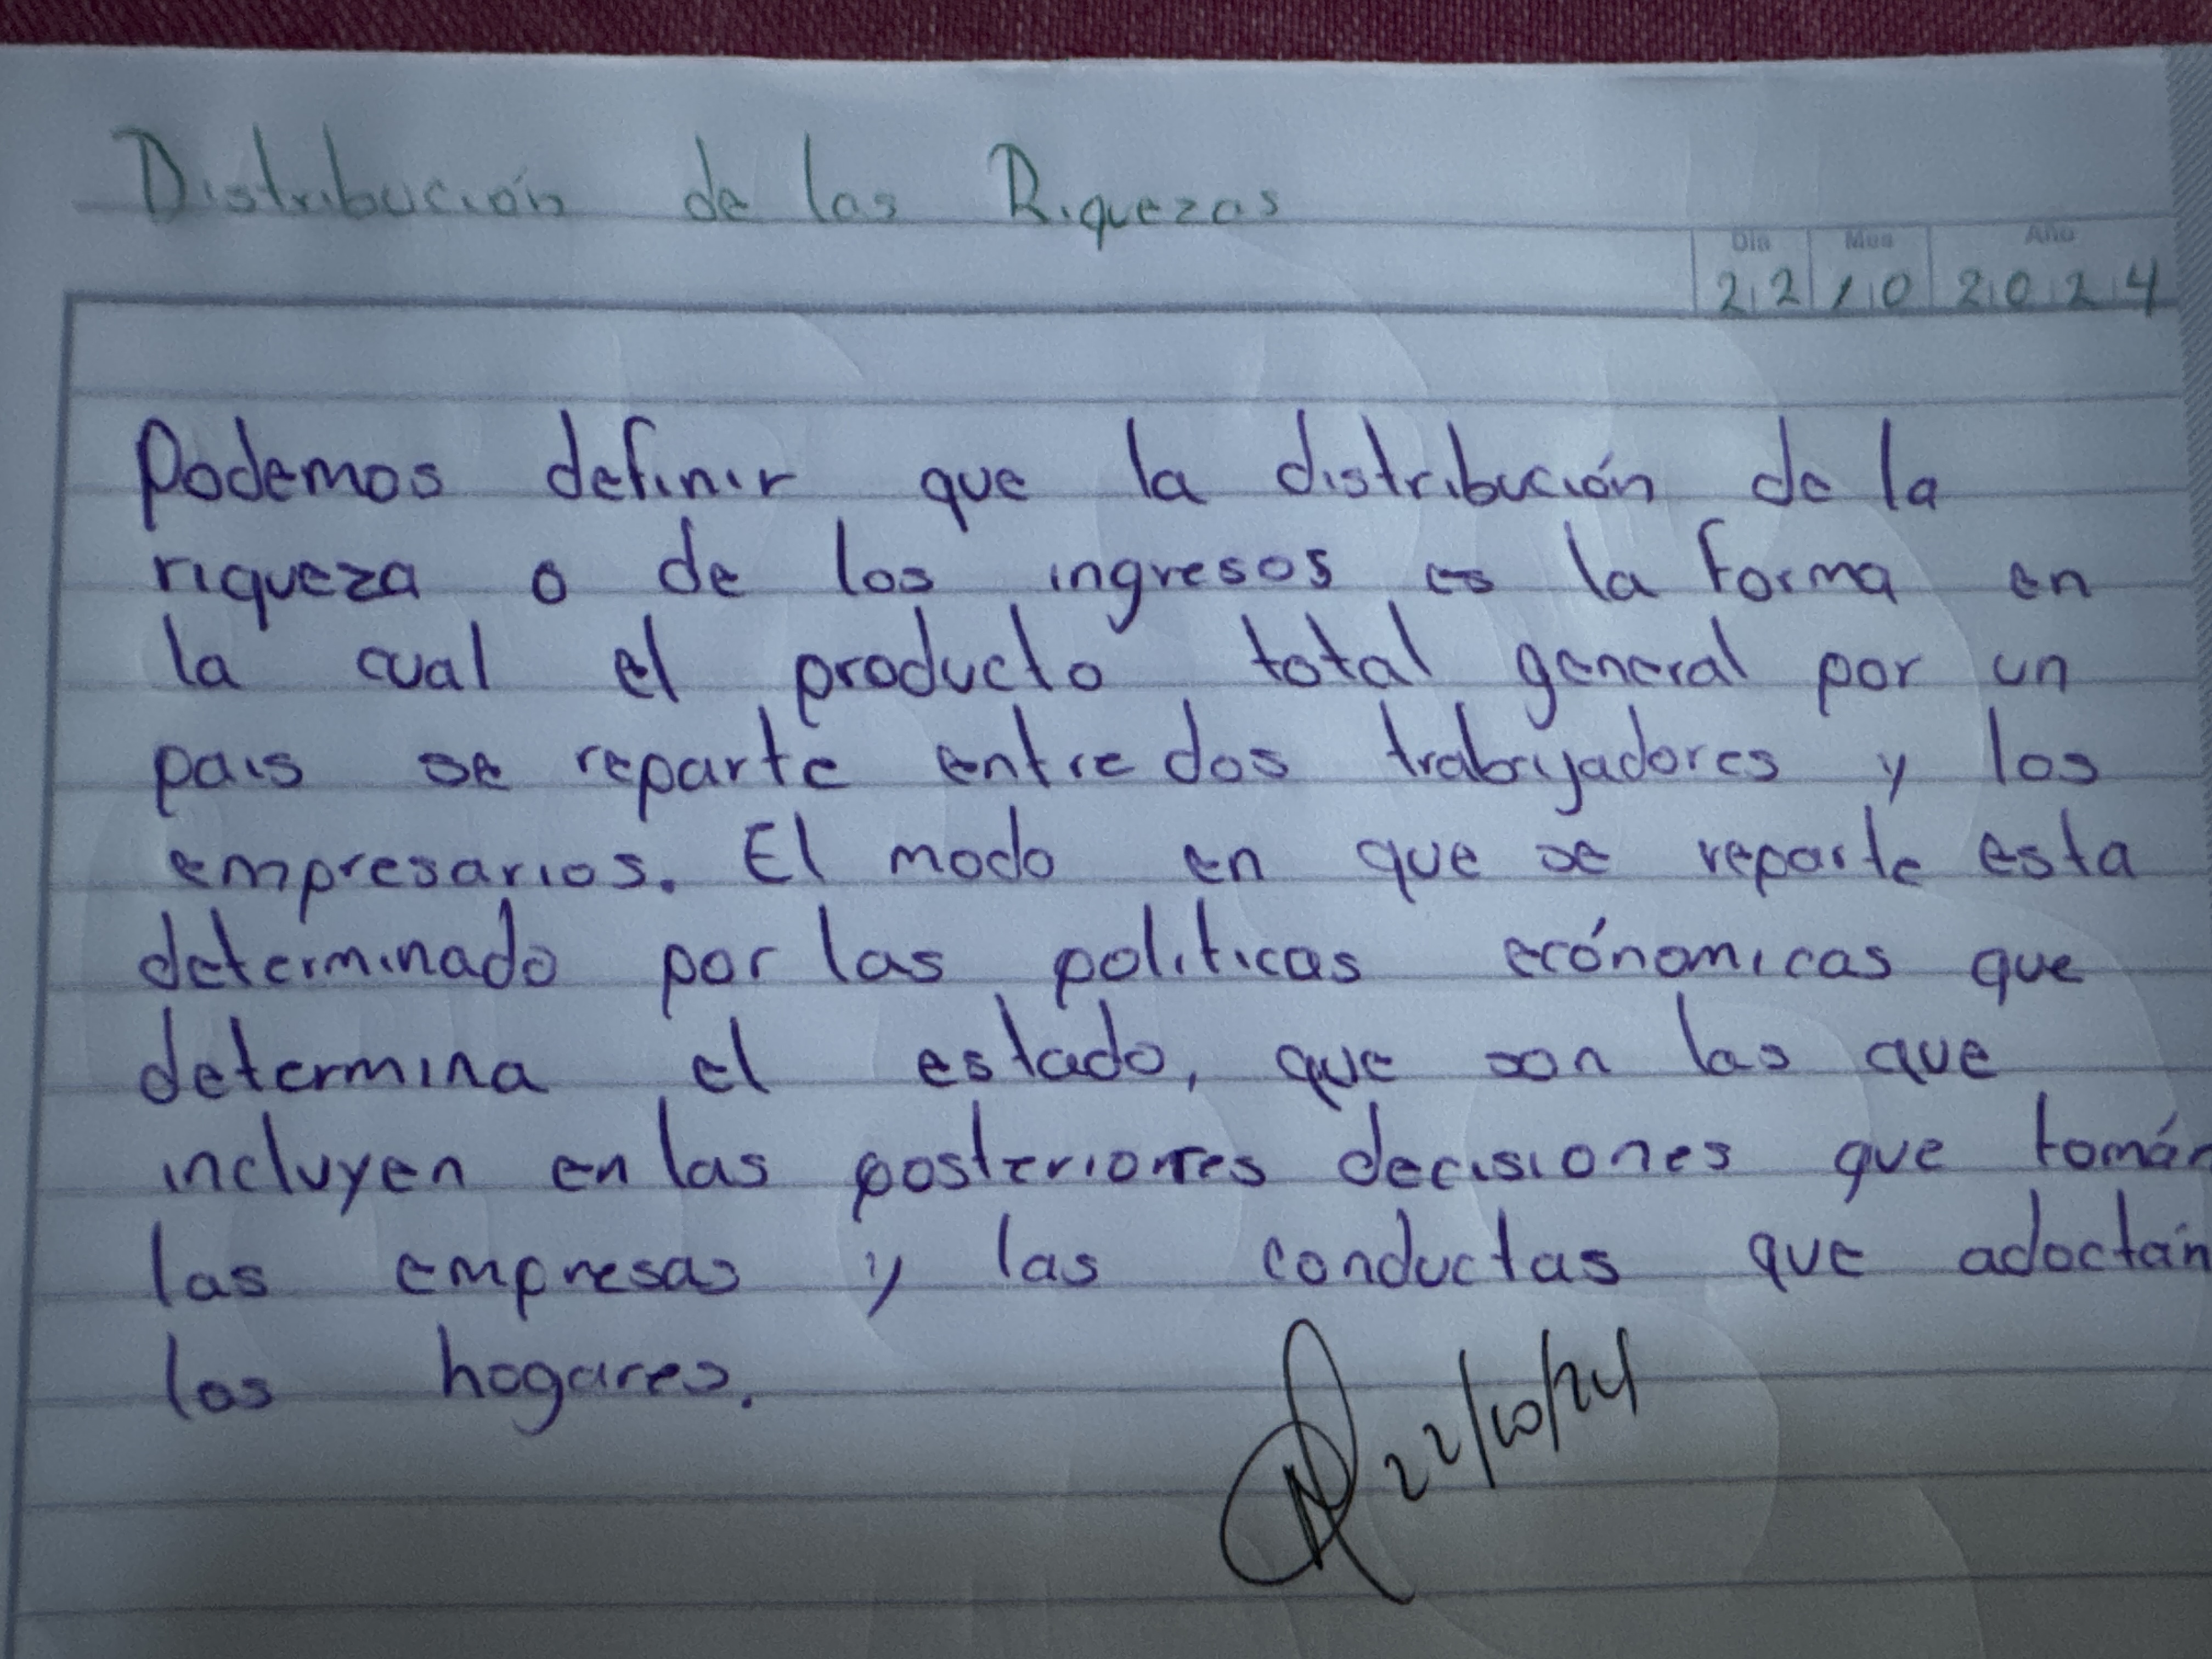 Distribución de las Riquezas
Día Mes Año
22 10 2024
Podemos definir que la distribución de la
riqueza o de los ingresos es la forma en
la cual el producto total general por un
pais se reparte entre dos trabajadores y los
empresarios. El modo en que se reparte esta
determinado por las politicas ecónomicas que
determina el estado, que son las que
incluyen en las posteriores decisiones que tomán
las empresas y las conductas que adoctán
los hogares.
22/10/24